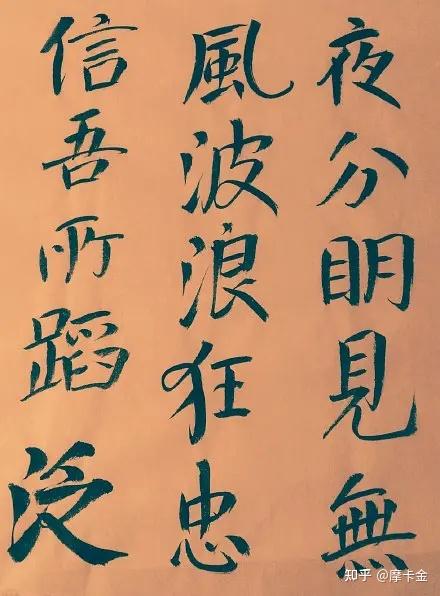 夜分明見無
風波浪狂忠
信吾所蹈泛
知乎 @摩卡金